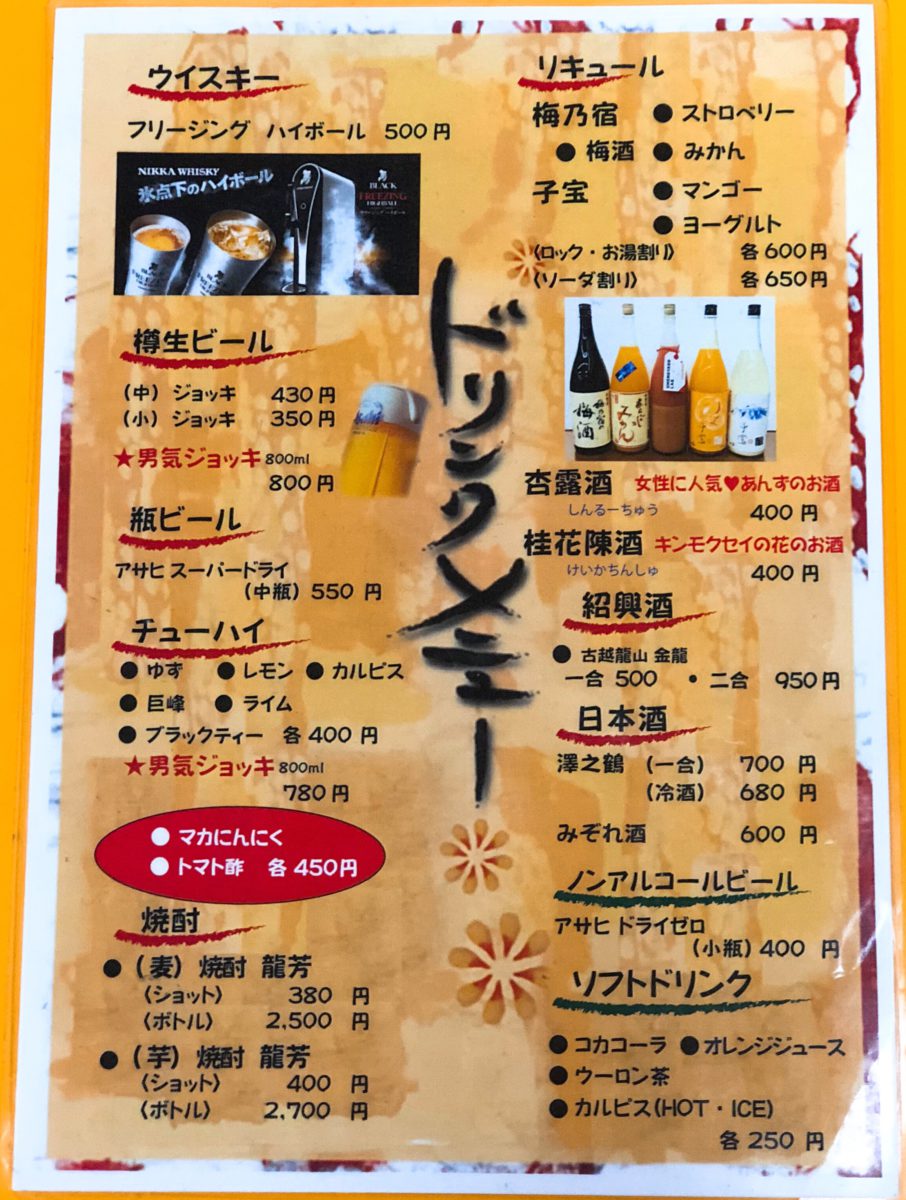 ウイスキー
フリージング ハイボール 500円
NIKKA WHISKY
氷点下のハイボール
BLACK
FREEZING
HIGHBALL
樽生ビール
(中) ジョッキ 430円
(小) ジョッキ 350円
★男気ジョッキ 800ml
800円
瓶ビール
アサヒ スーパードライ
(中瓶) 550 円
チューハイ
● ゆず ● レモン ● カルピス
● 巨峰 ● ライム
● ブラックティー 各 400 円
★男気ジョッキ 800ml
780円
● マカにんにく
● トマト酢 各 450円
焼酎
● (麦) 焼酎 龍芳
〈ショット〉 380 円
〈ボトル〉 2,500 円
● (芋) 焼酎 龍芳
〈ショット〉 400 円
〈ボトル〉 2,700 円
ドリンクメニュー
リキュール
梅乃宿 ● ストロベリー
● 梅酒 ● みかん
子宝 ● マンゴー
● ヨーグルト
〈ロック・お湯割り〉 各 600 円
〈ソーダ割り〉 各 650 円
梅酒
みかん
子宝
杏露酒 女性に人気♥あんずのお酒
しんるーちゅう 400 円
桂花陳酒 キンモクセイの花のお酒
けいかちんしゅ 400 円
紹興酒
● 古越龍山 金龍
一合 500 ・ 二合 950円
日本酒
澤之鶴 (一合) 700 円
(冷酒) 680 円
みぞれ酒 600 円
ノンアルコールビール
アサヒ ドライゼロ
(小瓶) 400 円
ソフトドリンク
● コカコーラ ● オレンジジュース
● ウーロン茶
● カルピス(HOT・ICE)
各 250 円